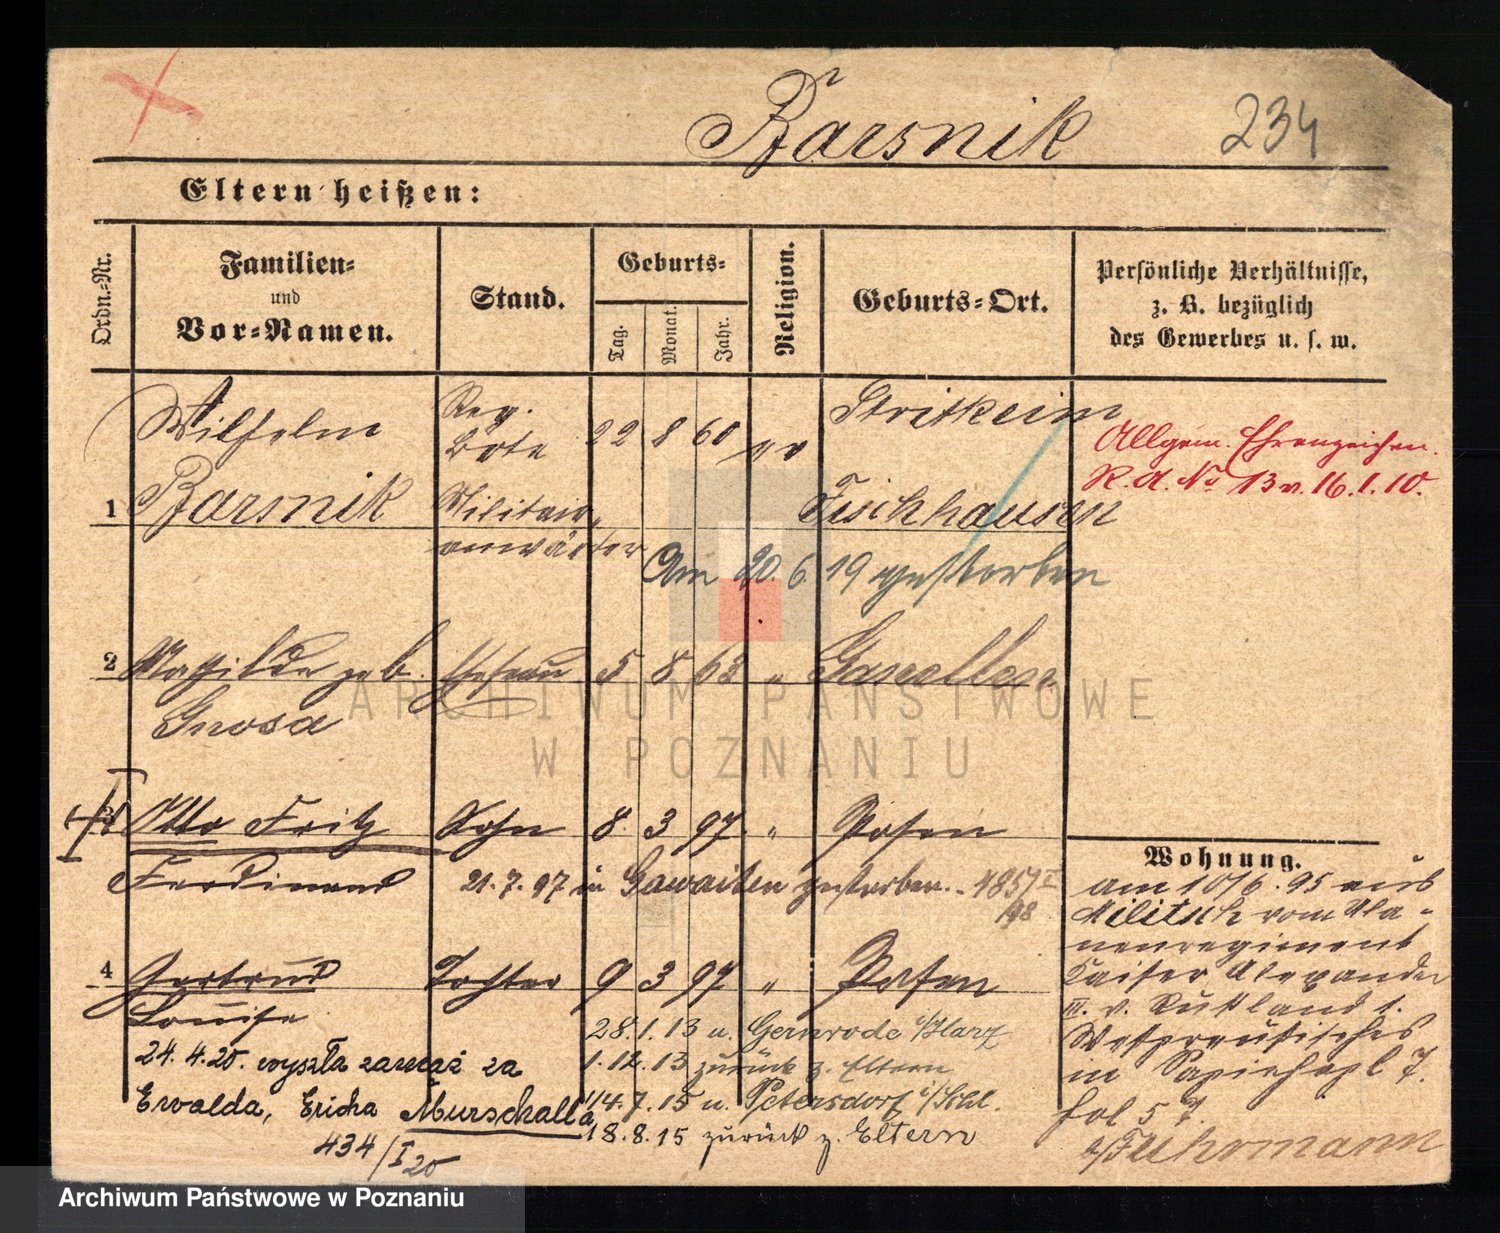 Barsnik
234
Eltern heißen:
Ordn.-Nr.
Familien- und Vor-Namen.
Stand.
Geburts-
Tag.
Monat.
Jahr.
Religion.
Geburts-Ort.
Persönliche Verhältnisse,
z. B. bezüglich
des Gewerbes u. s. w.
1
Wilhelm
Barsnik
Reg.
Bote
Militair
anwärter
22 8 60 ev
Fischhausen
Allgem. Ehrenzeichen.
R. A. No 13 v. 16.1.10.
Am 20.6.19 gestorben
2
Mathilde geb.
Gnosa
Ehefrau
5 8 63 "
3
Otto Fritz
Ferdinand
Sohn
8. 3 97. "
Posen
21.7.97 in Gawaiten gestorben. 4857 I
/98
4
Gertrud
Louise
Tochter
9 3 97 "
Posen
28.1.13 n. Gernrode i/Harz
1.12.13 zurück z. Eltern
1/4.7.15 n. Petersdorf i/Schl.
18.8.15 zurück z. Eltern
24.4.20. wyszła zamąż za
Ewalda, Ericha Murschall'a
434/I 20
Wohnung.
am 10/6.95 aus
Militsch vom Ula-
nenregiment
Kaiser Alexander
III. v. Rußland 1.
Westpreußisches
in Sapiehapl 7.
fol 57.
b/Fuhrmann
ARCHIWUM PAŃSTWOWE
W POZNANIU
Archiwum Państwowe w Poznaniu